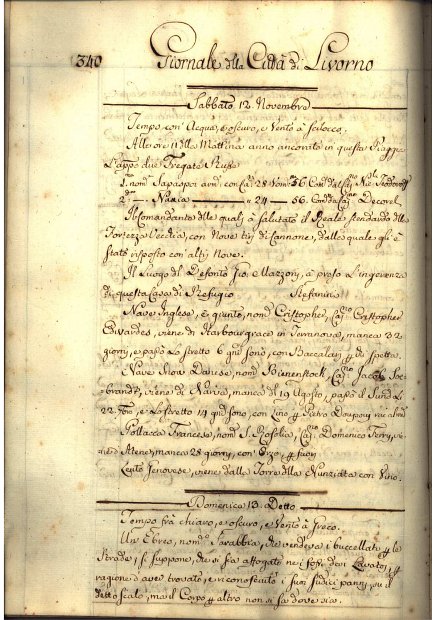 340 Giornale della Città di Livorno
Sabbato 12. Novembre
Tempo con Acqua, e oscuro, e Vento à Scilocco.
Alle ore 11 della Mattina anno ancorato in questa Spiaggia
L'appo due Fregate Russe
28 56
2.ª Narcia 24 56. Com. da Decorel
Il Comandante delle quali à salutato il Reale Stendardo della
Fortezza Vecchia, con Nove tiri di Cannone, dalle quale gli è
stato risposto con altri Nove.
Il Luogo del Defonto Gio. Mazzoni, à preso l'ingerenza
di questa Casa di Refugio Stefanini
Nave Inglese, è giunto, nom.ª Cristopher, Cap.no Cristopher
Edvardes, viene di Harbourgrace in Terranova, manca 32
giorni, e passò Lo Stretto 6 giorni sono, con Baccalari
Nave Danese, nom.ª Bienenstock, Cap.no Jacob
viene di Narva, manca del 19 Agosto, passò il Sund Li
22. e Lo Stretto 14 giorni sono, con Lino, Pietro
Pollacca Francese, nom.ª S. Rosolia, Cap.no Domenico Ferry,
Atene, manca 28 giorni, con
Leuto Genovese, viene dalla Torre della Nunziata con Vino.
Domenica 13. Detto
Tempo frà chiaro, e oscuro, e Vento à Greco.
Un Ebreo, nom.º Tarabbia, che vendeva i buccellati per le
Strade, si suppone, che si sia affogato ne i fossi dei Lavatoj, per
ragione d'aver trovato, e riconosciuti i suoi sudici panni, su il
detto scalo, ma il Corpo per altro non si sà dove sia.